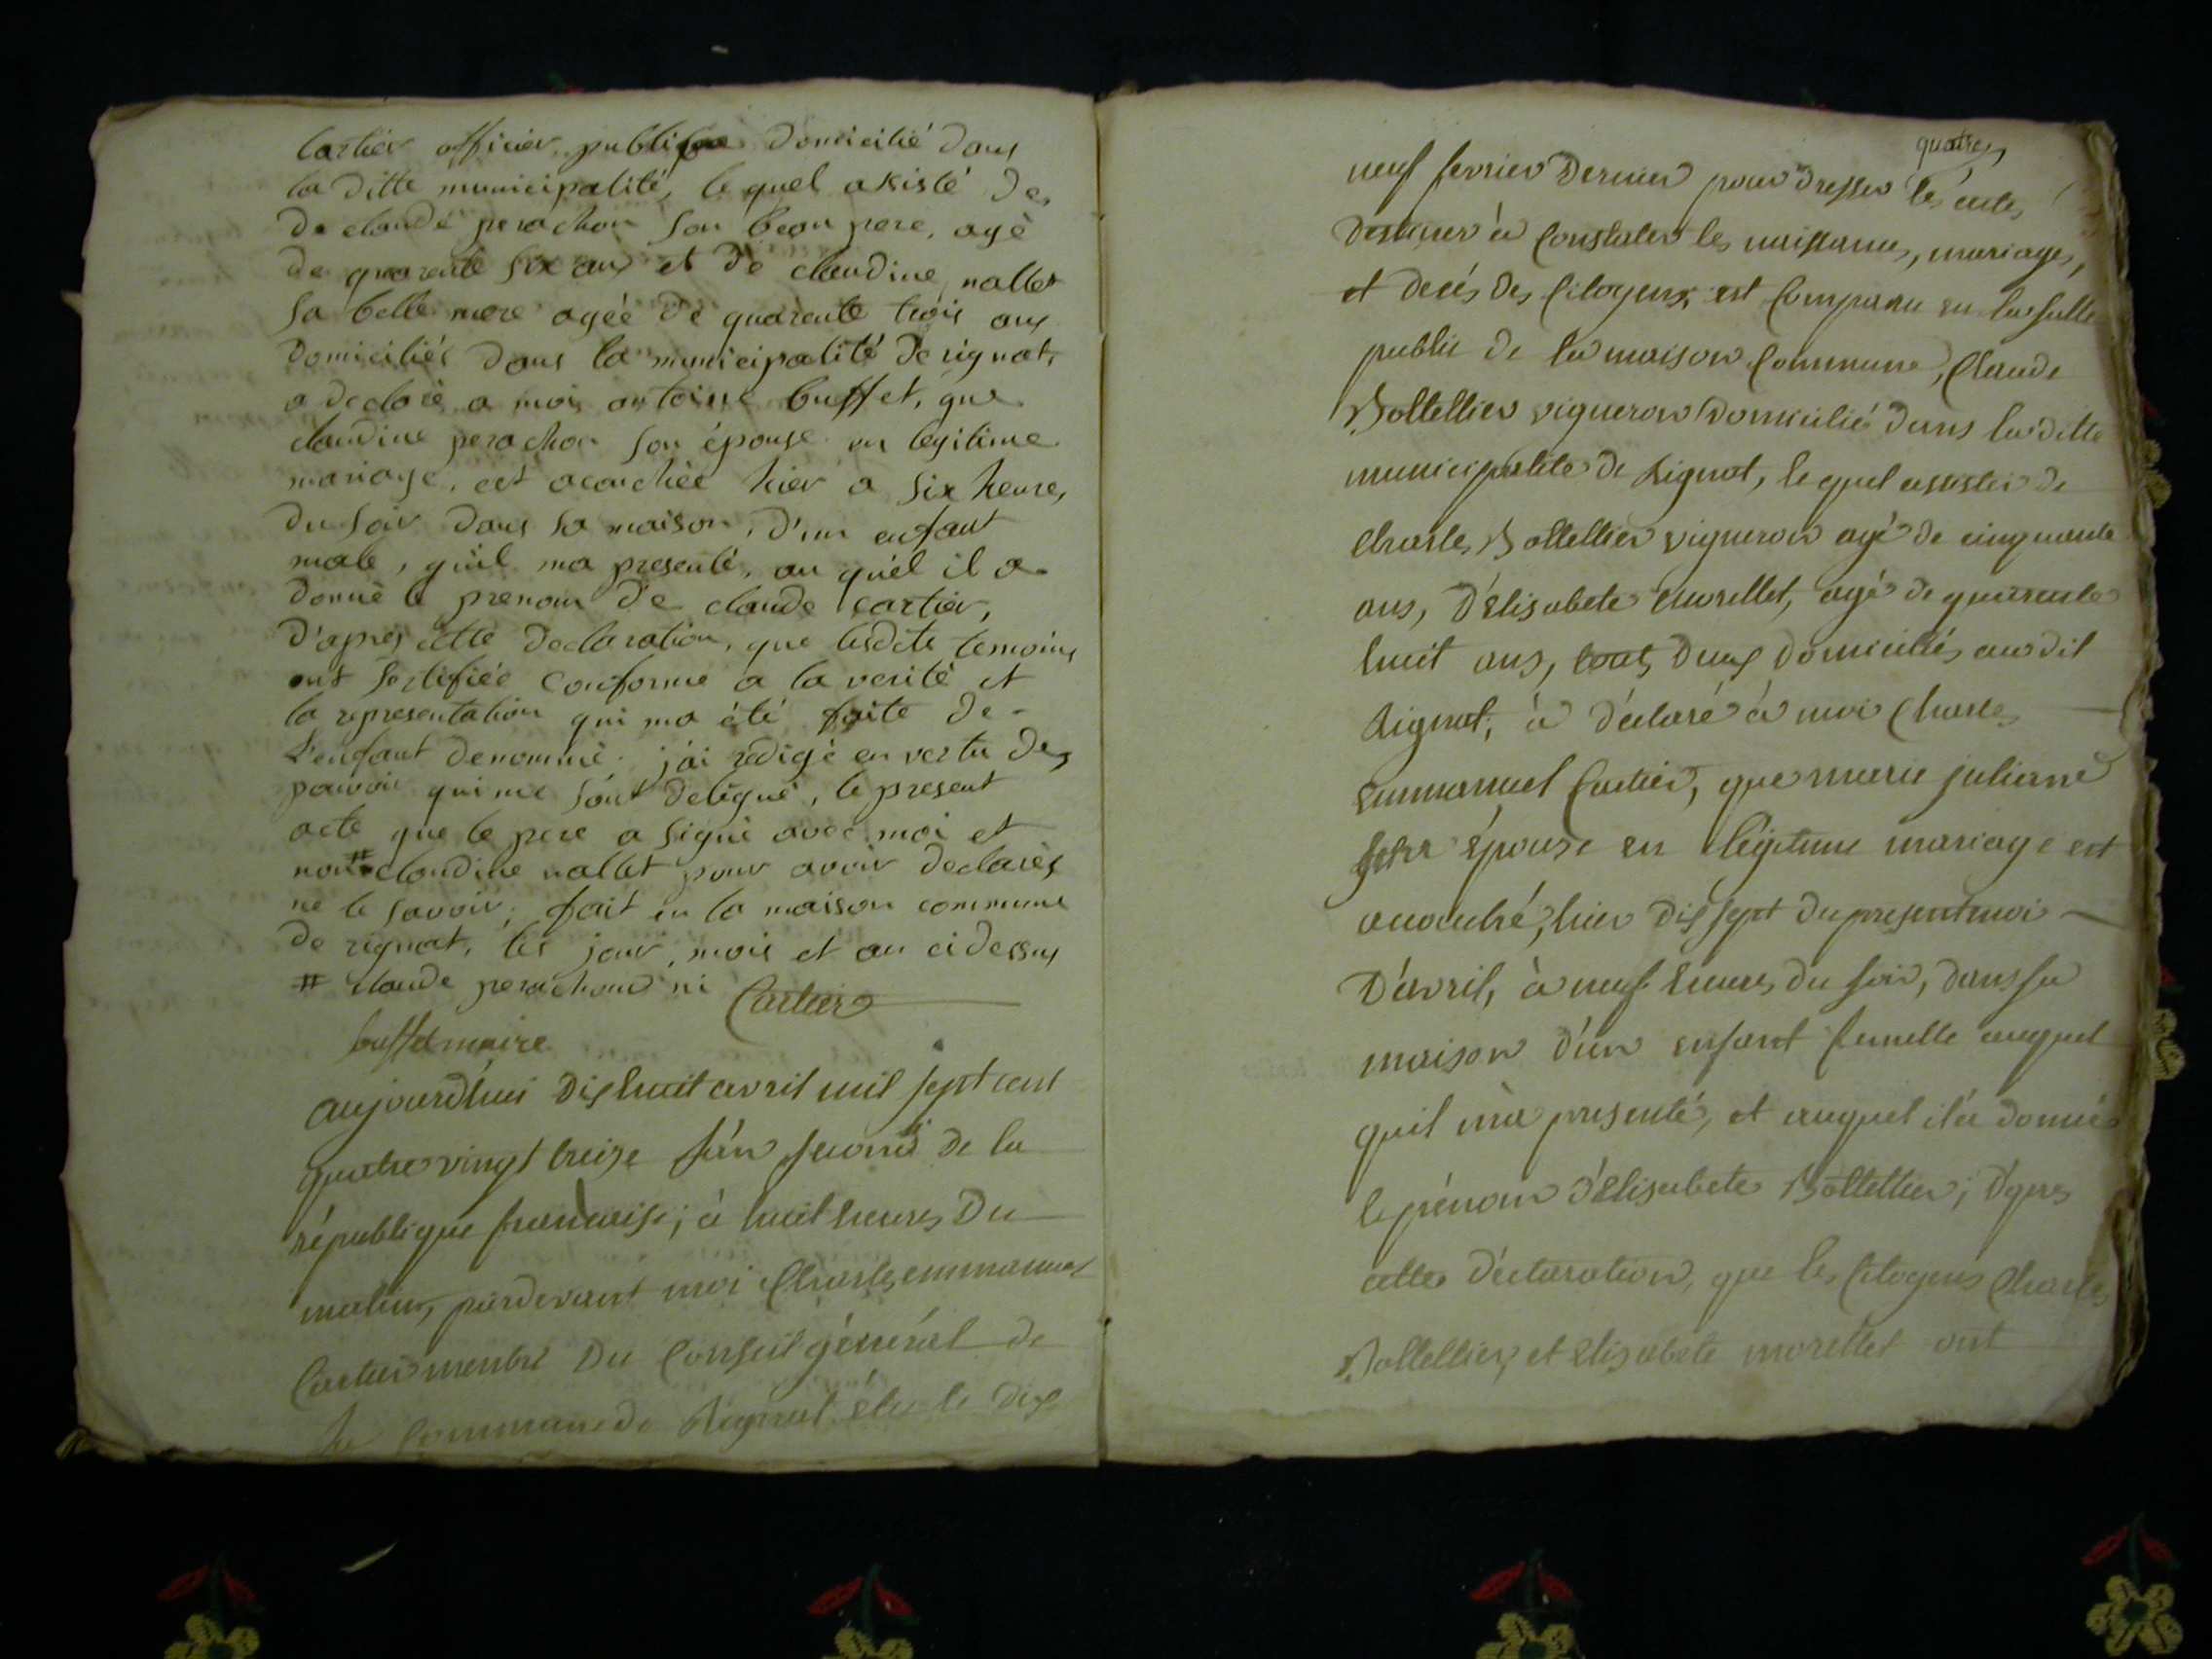 Cartier officier publique domicilié dans
la ditte municipalité, le quel assisté de
de claude perachon son beau pere, agè
de quarente six ans et de claudine nallet
sa belle mere agéé de quarente trois ans
domiciliés dans la municipalité de rignat,
a declaré a moi antoine buffet, que
claudine perachon son épouse en legitime
mariage, est acouchée hier a six heures
du soir dans sa maison, d'un enfant
male, qu'il ma presenté, au quel il a
donnè le prenom de claude cartier,
d'après cette declaration, que lesdits temoins
ont sertifiée conforme a la verité et
la representation qui ma été faite de
l'enfant denommé. j'ai redigé en vertu des
pouvoir qui me sont delegué, le present
acte que le pere a signé avec moi et
non # claudine nallet pour avoir declarès
ne le savoir. fait en la maison commune
de rignat, les jour, mois et an ci dessus
# claude perachond ni Cartier
buffet maire
aujourd'hui dix huit avril mil sept cent
quatre vingt treize l'an second de la
république francaise; à huit heures du
matin, pardevant moi Charles emmanuel
Cartier membre du Conseil général de
la commune de Rignat élu le dix
quatre
neuf fevrier dernier pour dresser les actes
destiner à Constater les naissances, mariages,
et decés des Citoyens, est Comparu en la salle
public de la maison Commune, Claude
Bottellier vigneron domicilié dans la ditte
municipalite de Rignat, le quel assister de
Charles Bottellier vigneron agé de cinquante
ans, d'Elisabete morellet, agé de quarente
huit ans, tout deux domiciliés audit
Rignat, à déclaré à moi Charles
Emmanuel Cartier, que marie juliane
épouse en légitime mariage est
accouché, hier dix sept du present moi
d'avril, à neuf heures du soir, dans sa
maison d'un enfant femelle auquel
quil m'a presenté, et auquel il a donné
le prénom d'Elisabete Bottellier; d'apres
cette déclaration, que les Citoyens Charles
Bottellier, et Elisabete morellet ont